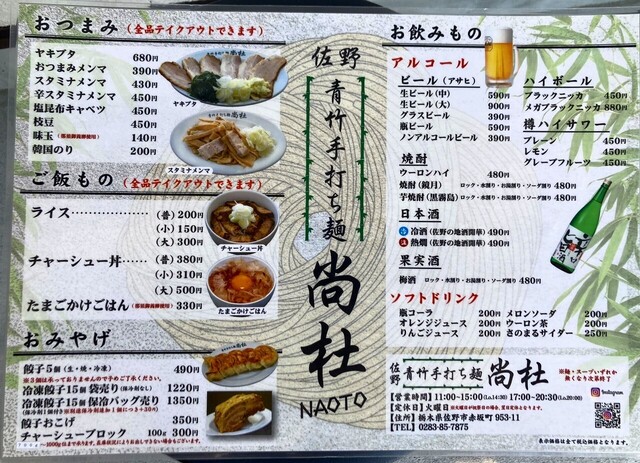 おつまみ（全品テイクアウトできます）
ヤキブタ 680円
おつまみメンマ 390円
スタミナメンマ 430円
辛スタミナメンマ 450円
塩昆布キャベツ 450円
枝豆 450円
味玉（那須御養卵使用） 140円
韓国のり 200円
ヤキブタ
スタミナメンマ
ご飯もの（全品テイクアウトできます）
ライス（普）200円
（小）150円
（大）300円
チャーシュー丼（普）380円
（小）310円
（大）500円
たまごかけごはん（那須御養卵使用）330円
チャーシュー丼
たまごかけごはん
おみやげ
餃子5個（生・焼・冷凍） 490円
※3個は承っておりませんので予めご了承ください。
冷凍餃子15個 袋売り（保冷剤なし） 1220円
冷凍餃子15個 保冷バッグ売り 1350円
（保冷剤1個付き）
餃子おこげ 350円
チャーシューブロック 100g 300円
佐野
青竹手打ち麺
尚杜
NAOTO
お飲みもの
アルコール
ビール（アサヒ）
生ビール（中） 590円
生ビール（大） 900円
グラスビール 390円
瓶ビール 590円
ノンアルコールビール 390円
焼酎
ウーロンハイ 480円
焼酎（鏡月） ロック・水割り・お湯割り・ソーダ割り 480円
芋焼酎（黒霧島） ロック・水割り・お湯割り・ソーダ割り 480円
日本酒
冷酒（佐野の地酒開華）490円
熱燗（佐野の地酒開華）490円
果実酒
梅酒 ロック・水割り・お湯割り・ソーダ割り 480円
ハイボール
ブラックニッカ 450円
メガブラックニッカ 880円
樽ハイサワー
プレーン 450円
レモン 450円
グレープフルーツ 450円
ソフトドリンク
瓶コーラ 200円
オレンジジュース 200円
りんごジュース 200円
メロンソーダ 200円
ウーロン茶 200円
さのまるサイダー 250円
佐野 青竹手打ち麺 尚杜
※麺・スープいずれか
無くなり次第終了
【営業時間】11:00~15:00(Lo.14:30) 17:00~20:30(Lo.20:00)
【定休日】火曜日 ※火曜日が祝祭日の場合、翌日定休となります。
【住所】栃木県佐野市赤坂町953-11
【TEL】0283-85-7875
Instagram
表示価格は全て税込価格となります。